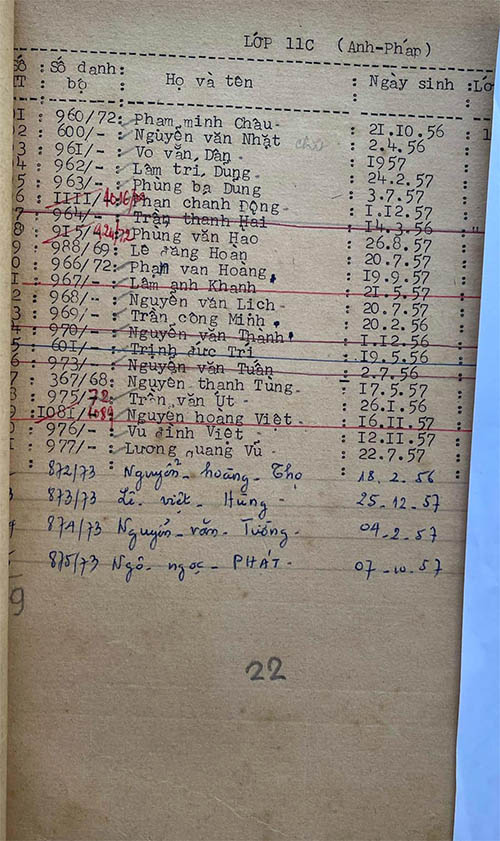 LỚP 11C (Anh-Pháp)
Số : Số danh bộ : Họ và tên : Ngày sinh : Lớ
1 : 960/72 : Phạm minh Châu - : 21.10.56 : 1
2 : 600/- : Nguyễn văn Nhật : 2.4.56 :
3 : 961/- : Võ văn Dần - : 1957 :
4 : 962/- : Lâm trí Dung - : 24.2.57 :
5 : 963/- : Phùng bá Dung : 3.7.57 :
6 : 1111/ : Phan chanh Động : 1.12.57 :
7 : 964/- : Trần thanh Hải : 14.3.56 : "
8 : 915/ : Phùng văn Hạo : 26.8.57 :
9 : 988/69 : Lê đăng Hoan : 20.7.57 :
0 : 966/72 : Phạm văn Hoàng : 19.9.57 :
1 : 967/- : Lâm anh Khanh : 21.5.57 :
2 : 968/- : Nguyễn văn Lich - : 20.7.57 :
3 : 969/- : Trần công Minh : 20.2.56 :
4 : 970/- : Nguyễn văn Thanh : 1.12.56 :
5 : 601/- : Trịnh đức Trí : 19.5.56 :
6 : 973/- : Nguyễn văn Tuấn : 2.7.56 :
7 : 367/68 : Nguyễn thanh Tùng - : 17.5.57 :
8 : 975/72 : Trần văn Út - : 26.1.56 :
9 : 1081/ : Nguyễn hoàng Việt - : 16.11.57 :
0 : 976/- : Vũ đình Việt - : 12.11.57 :
1 : 977/- : Lương quang Vũ - : 22.7.57 :
872/73 Nguyễn - hoàng - Thọ 18.2.56
873/73 Lê - việt - Hùng - 25-12-57
874/73 Nguyễn - văn - Tưởng - 04-2-57
875/73 Ngô - ngọc - PHÁT - 07-10-57
9
22